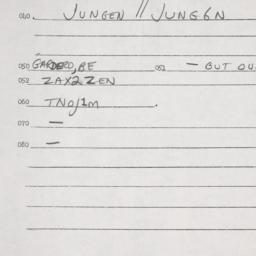 040. JUNGEN // JUNG6N
050 GARDERO,BE 051 — BUT OU
052 ZAX2ZEN
060 TNO/1M .
070 —
080 —